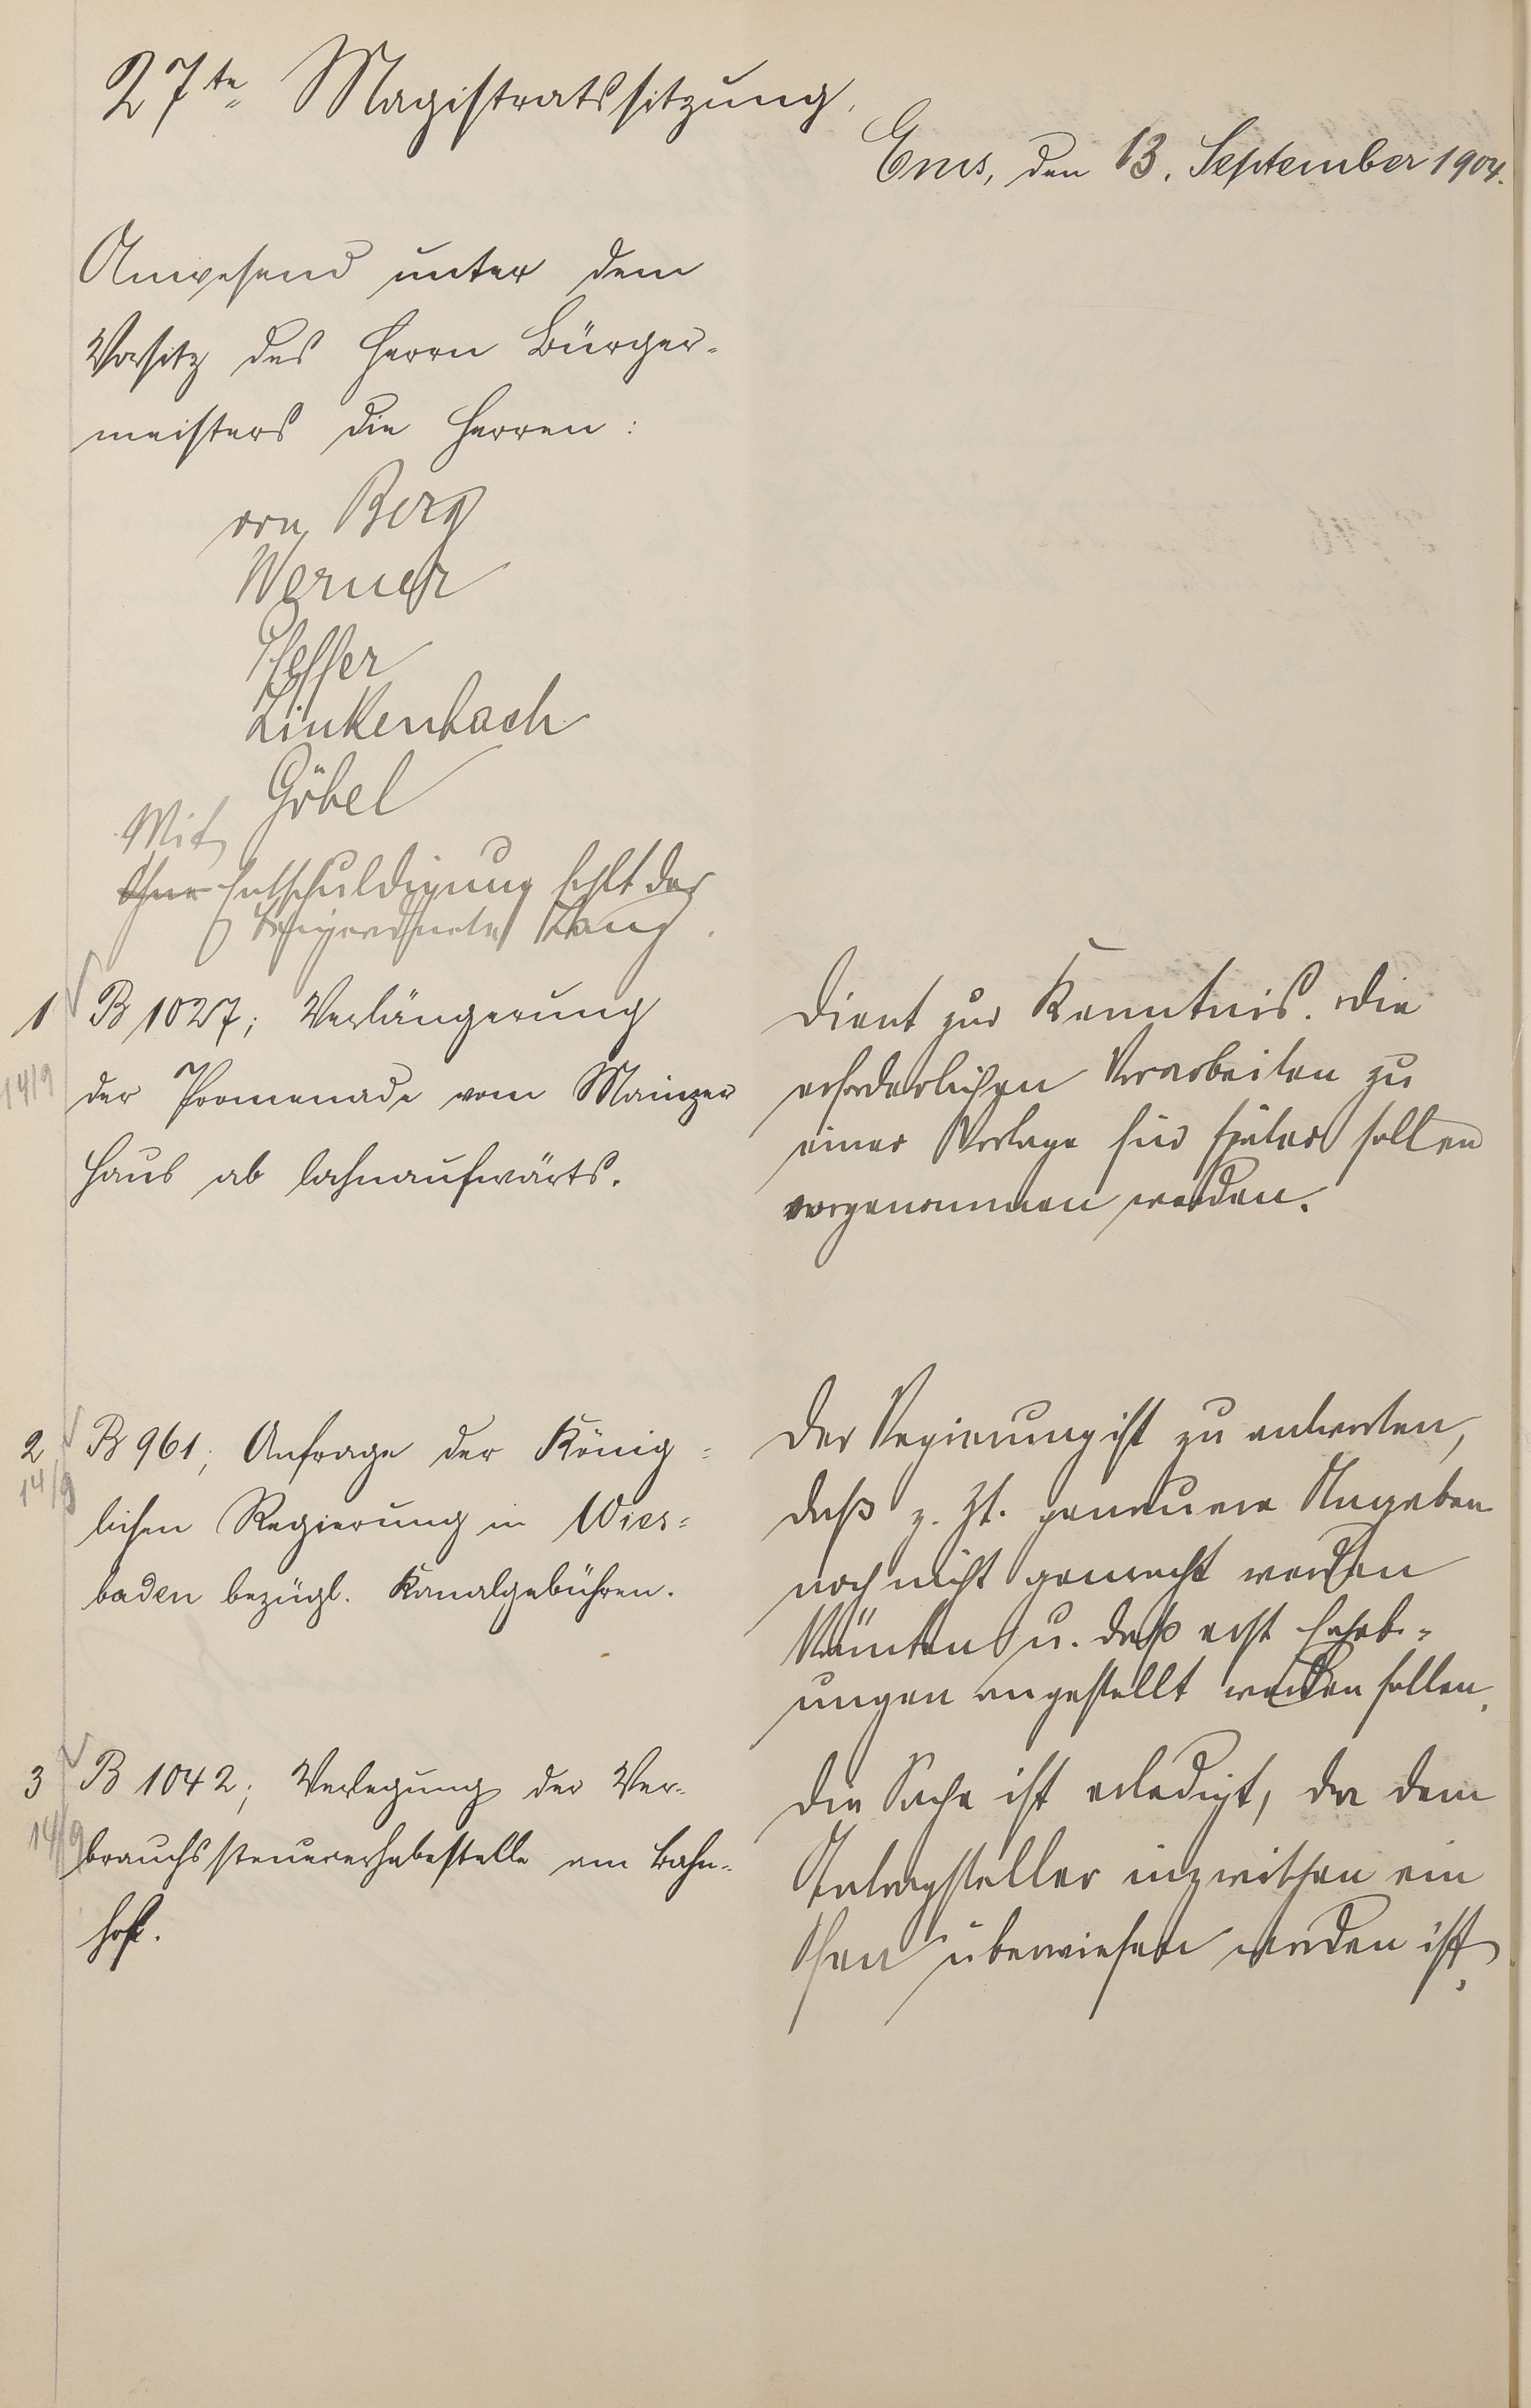 27te Magistratssitzung.
Ems, den 13. September 1904.
Anwesend unter dem
Vorsitz des Herrn Bürger-
meisters die Herren:
von Berg
Werner
Pfeffer
Linkenbach
Göbel
Mit
Ohne Entschuldigung fehlt der
Beigeordnete Kauz.
1 B 1027; Verlängerung
14/9
der Promenade vom Mainzer
Haus ab lahnaufwärts.
Dient zur Kenntnis. Die
erforderlichen Vorarbeiten zu
einer Vorlage für später sollen
vorgenommen werden.
2 B 961; Anfrage der König-
14/9
lichen Regierung in Wies-
baden bezügl. Kanalgebühren.
Der Regierung ist zu antworten,
daß z. Zt. genauere Angaben
noch nicht gemacht werden
könnten u. daß erst Erheb-
ungen angestellt werden sollen.
3 B 1042; Verlegung der Ver-
14/9
brauchssteuererhebestelle am Bahn-
hof.
Die Sache ist erledigt, da dem
Antragsteller inzwischen ein
Ofen überwiesen worden ist.